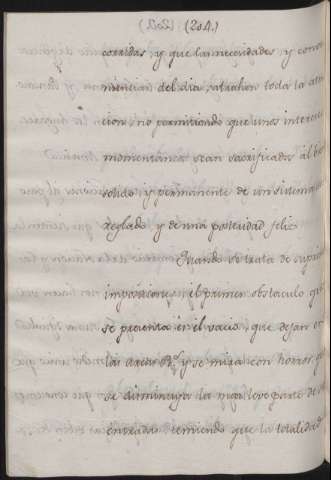 (204.)
corridas, y que las necesidades y conve
niencias del dia, atrahen toda la aten
cion, no permitiendo que unos intereses
momentaneos sean sacrificados al bien
solido, y permanente de un sistema
reglado, y de una posteridad feliz.
Quando se trata de suprimir
imposiciones, el primer obstaculo que
se presenta es el vacio, que dejan en
las arcas R.^s y se mira con horror, que
se disminuya la mas leve parte de
entradas, temiendo que la totalidad